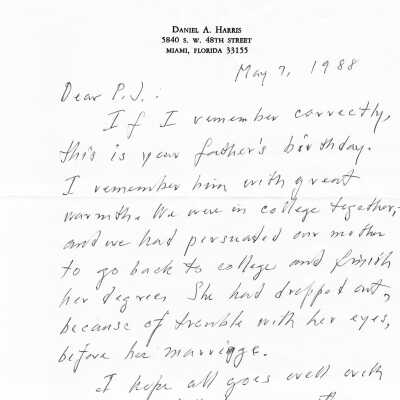 Daniel A. Harris
5840 S. W. 48th Street
Miami, Florida 33155
May 7, 1988
Dear P.J.:
If I remember correctly,
this is your father's birthday.
I remember him with great
warmth. We were in college together,
and we had persuaded our mother
to go back to college and finish
her degree. She had dropped out,
because of trouble with her eyes,
before her marriage.
I hope all goes well with